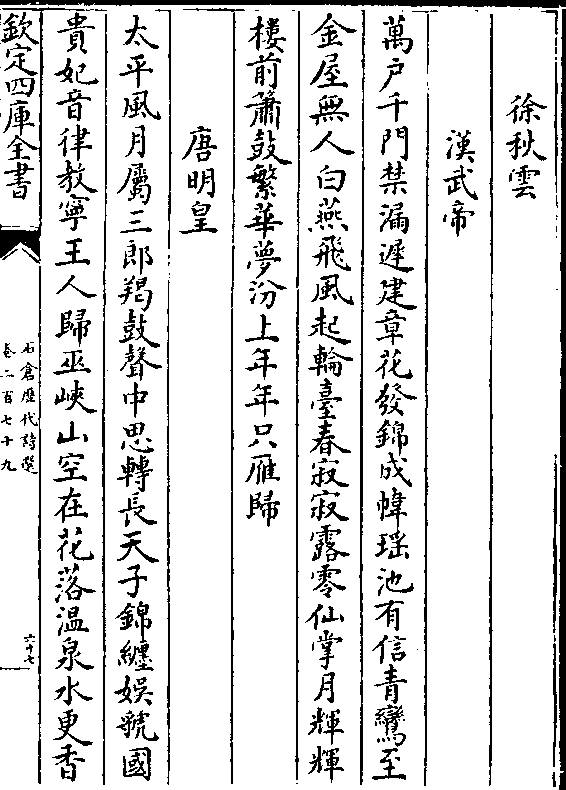 徐秋雲
漢武帝
萬户千門禁漏遲建章花發錦成幃瑶池有信青鸞至
金屋無人白燕飛風起輪臺春寂寂露零仙掌月輝輝
樓前簫鼓繁華夢汾上年年只雁歸
唐明皇
太平風月屬三郎羯鼓聲中思轉長天子錦纏娛虢國
貴妃音律教寧王人歸巫峽山空在花落温泉水更香
欽定四庫全書
石倉歷代詩選
卷二百七十九
六十七